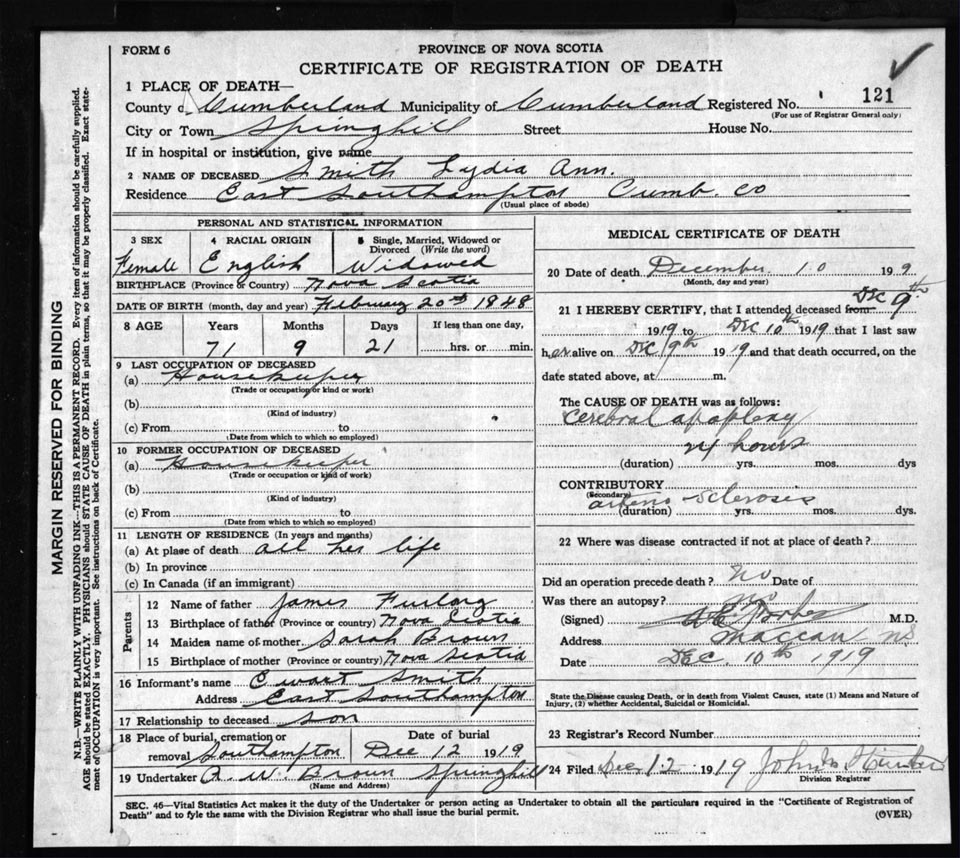 FORM 6
PROVINCE OF NOVA SCOTIA
CERTIFICATE OF REGISTRATION OF DEATH
1 PLACE OF DEATH—
County of Cumberland Municipality of Cumberland Registered No. 121
(For use of Registrar General only)
City or Town Springhill Street House No.
If in hospital or institution, give name
2 NAME OF DECEASED Smith Lydia Ann.
Residence East Southampton Cumb. Co
(Usual place of abode)
MARGIN RESERVED FOR BINDING
N.B.—WRITE PLAINLY WITH UNFADING INK—THIS IS A PERMANENT RECORD. Every item of information should be carefully supplied.
AGE should be stated EXACTLY. PHYSICIANS should STATE CAUSE OF DEATH in plain terms, so that it may be properly classified. Exact state-
ment of OCCUPATION is very important. See instructions on back of Certificate.
PERSONAL AND STATISTICAL INFORMATION
3 SEX 4 RACIAL ORIGIN 5 Single, Married, Widowed or
Divorced (Write the word)
Female English Widowed
BIRTHPLACE (Province or Country) Nova Scotia
DATE OF BIRTH (month, day and year) February 20th 1848
8 AGE Years Months Days If less than one day,
71 9 21 hrs. or min.
9 LAST OCCUPATION OF DECEASED
(a) Housekeeper
(Trade or occupation or kind or work)
(b)
(Kind of industry)
(c) From to
(Date from which to which so employed)
10 FORMER OCCUPATION OF DECEASED
(a) Housekeeper
(Trade or occupation or kind of work)
(b)
(Kind of industry)
(c) From to
(Date from which to which so employed)
11 LENGTH OF RESIDENCE (In years and months)
(a) At place of death all her life
(b) In province
(c) In Canada (if an immigrant)
Parents
12 Name of father James Furlong
13 Birthplace of father (Province or country) Nova Scotia
14 Maiden name of mother Sarah Brown
15 Birthplace of mother (Province or country) Nova Scotia
16 Informant's name Ewart Smith
Address East Southampton
17 Relationship to deceased Son
18 Place of burial, cremation or Date of burial
removal Southampton Dec 12 1919
19 Undertaker R. W. Brown Springhill
(Name and Address)
MEDICAL CERTIFICATE OF DEATH
20 Date of death December 10 1919
(Month, day and year)
21 I HEREBY CERTIFY, that I attended deceased from Dec 9th
1919 to Dec 10th 1919 that I last saw
her alive on Dec 9th 1919 and that death occurred, on the
date stated above, at m.
The CAUSE OF DEATH was as follows:
Cerebral apoplexy
24 hours
(duration) yrs. mos. dys
CONTRIBUTORY
(Secondary) arterio sclerosis
(duration) yrs. mos. dys.
22 Where was disease contracted if not at place of death?
Did an operation precede death? No Date of
Was there an autopsy? No
(Signed) M.D.
Address Maccan NS
Date Dec. 10th 1919
State the Disease causing Death, or in death from Violent Causes, state (1) Means and Nature of
Injury, (2) whether Accidental, Suicidal or Homicidal.
23 Registrar's Record Number
24 Filed Dec 12 1919 John
Division Registrar
SEC. 46—Vital Statistics Act makes it the duty of the Undertaker or person acting as Undertaker to obtain all the particulars required in the "Certificate of Registration of
Death" and to fyle the same with the Division Registrar who shall issue the burial permit.
(OVER)